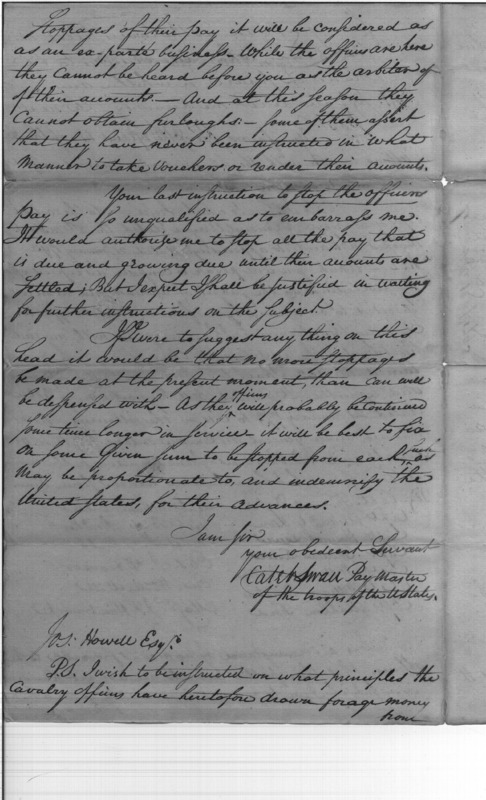 Stoppages of their pay it will be considered as
as an ex-parte business. While the officers are here
they Cannot be heard before you as the arbiter of
their accounts.— And at this season they
Cannot obtain furloughs.— Some of them assert
that they have never been instructed in what
Manner to take Vouchers, or render their accounts.
Your last instruction to stop the officers
pay is so unqualified as to embarrass me.
It would authorise me to stop all the pay that
is due and growing due until their accounts are
Settled; But I expect I shall be justified in waiting
for further instructions on the Subject.
If I were to suggest any thing on this
head it would be that no more stoppages
be made at the present moment, than can well
be despensed with— As the officers will probably be continued
some time longer in service it will be best to fix
on some Given sum to be stopped from each, such as
May be proportionate to, and indemnify the
United States, for their advances.
I am Sir
your obedient Servant
Caleb Swan Pay Master
of the troops of the U States.
Jos: Howell Esqr.
P.S. I wish to be instructed on what principles the
Cavalry officers have heretofore drawn forage money
from